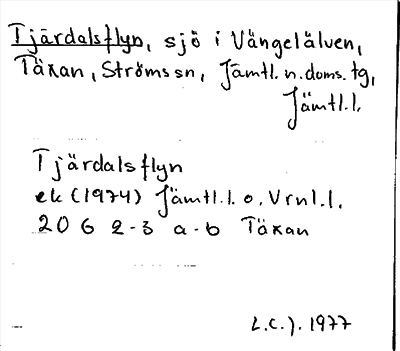 Tjärdalsflyn, sjö i Vängelälven,
Täxan, Ströms sn, Jämtl. n. doms. tg,
Jämtl.l.
Tjärdalsflyn
ek (1974) Jämtl.l. o. Vrnl.l.
20 G 2-3 a-b Täxan
L.C.J. 1977